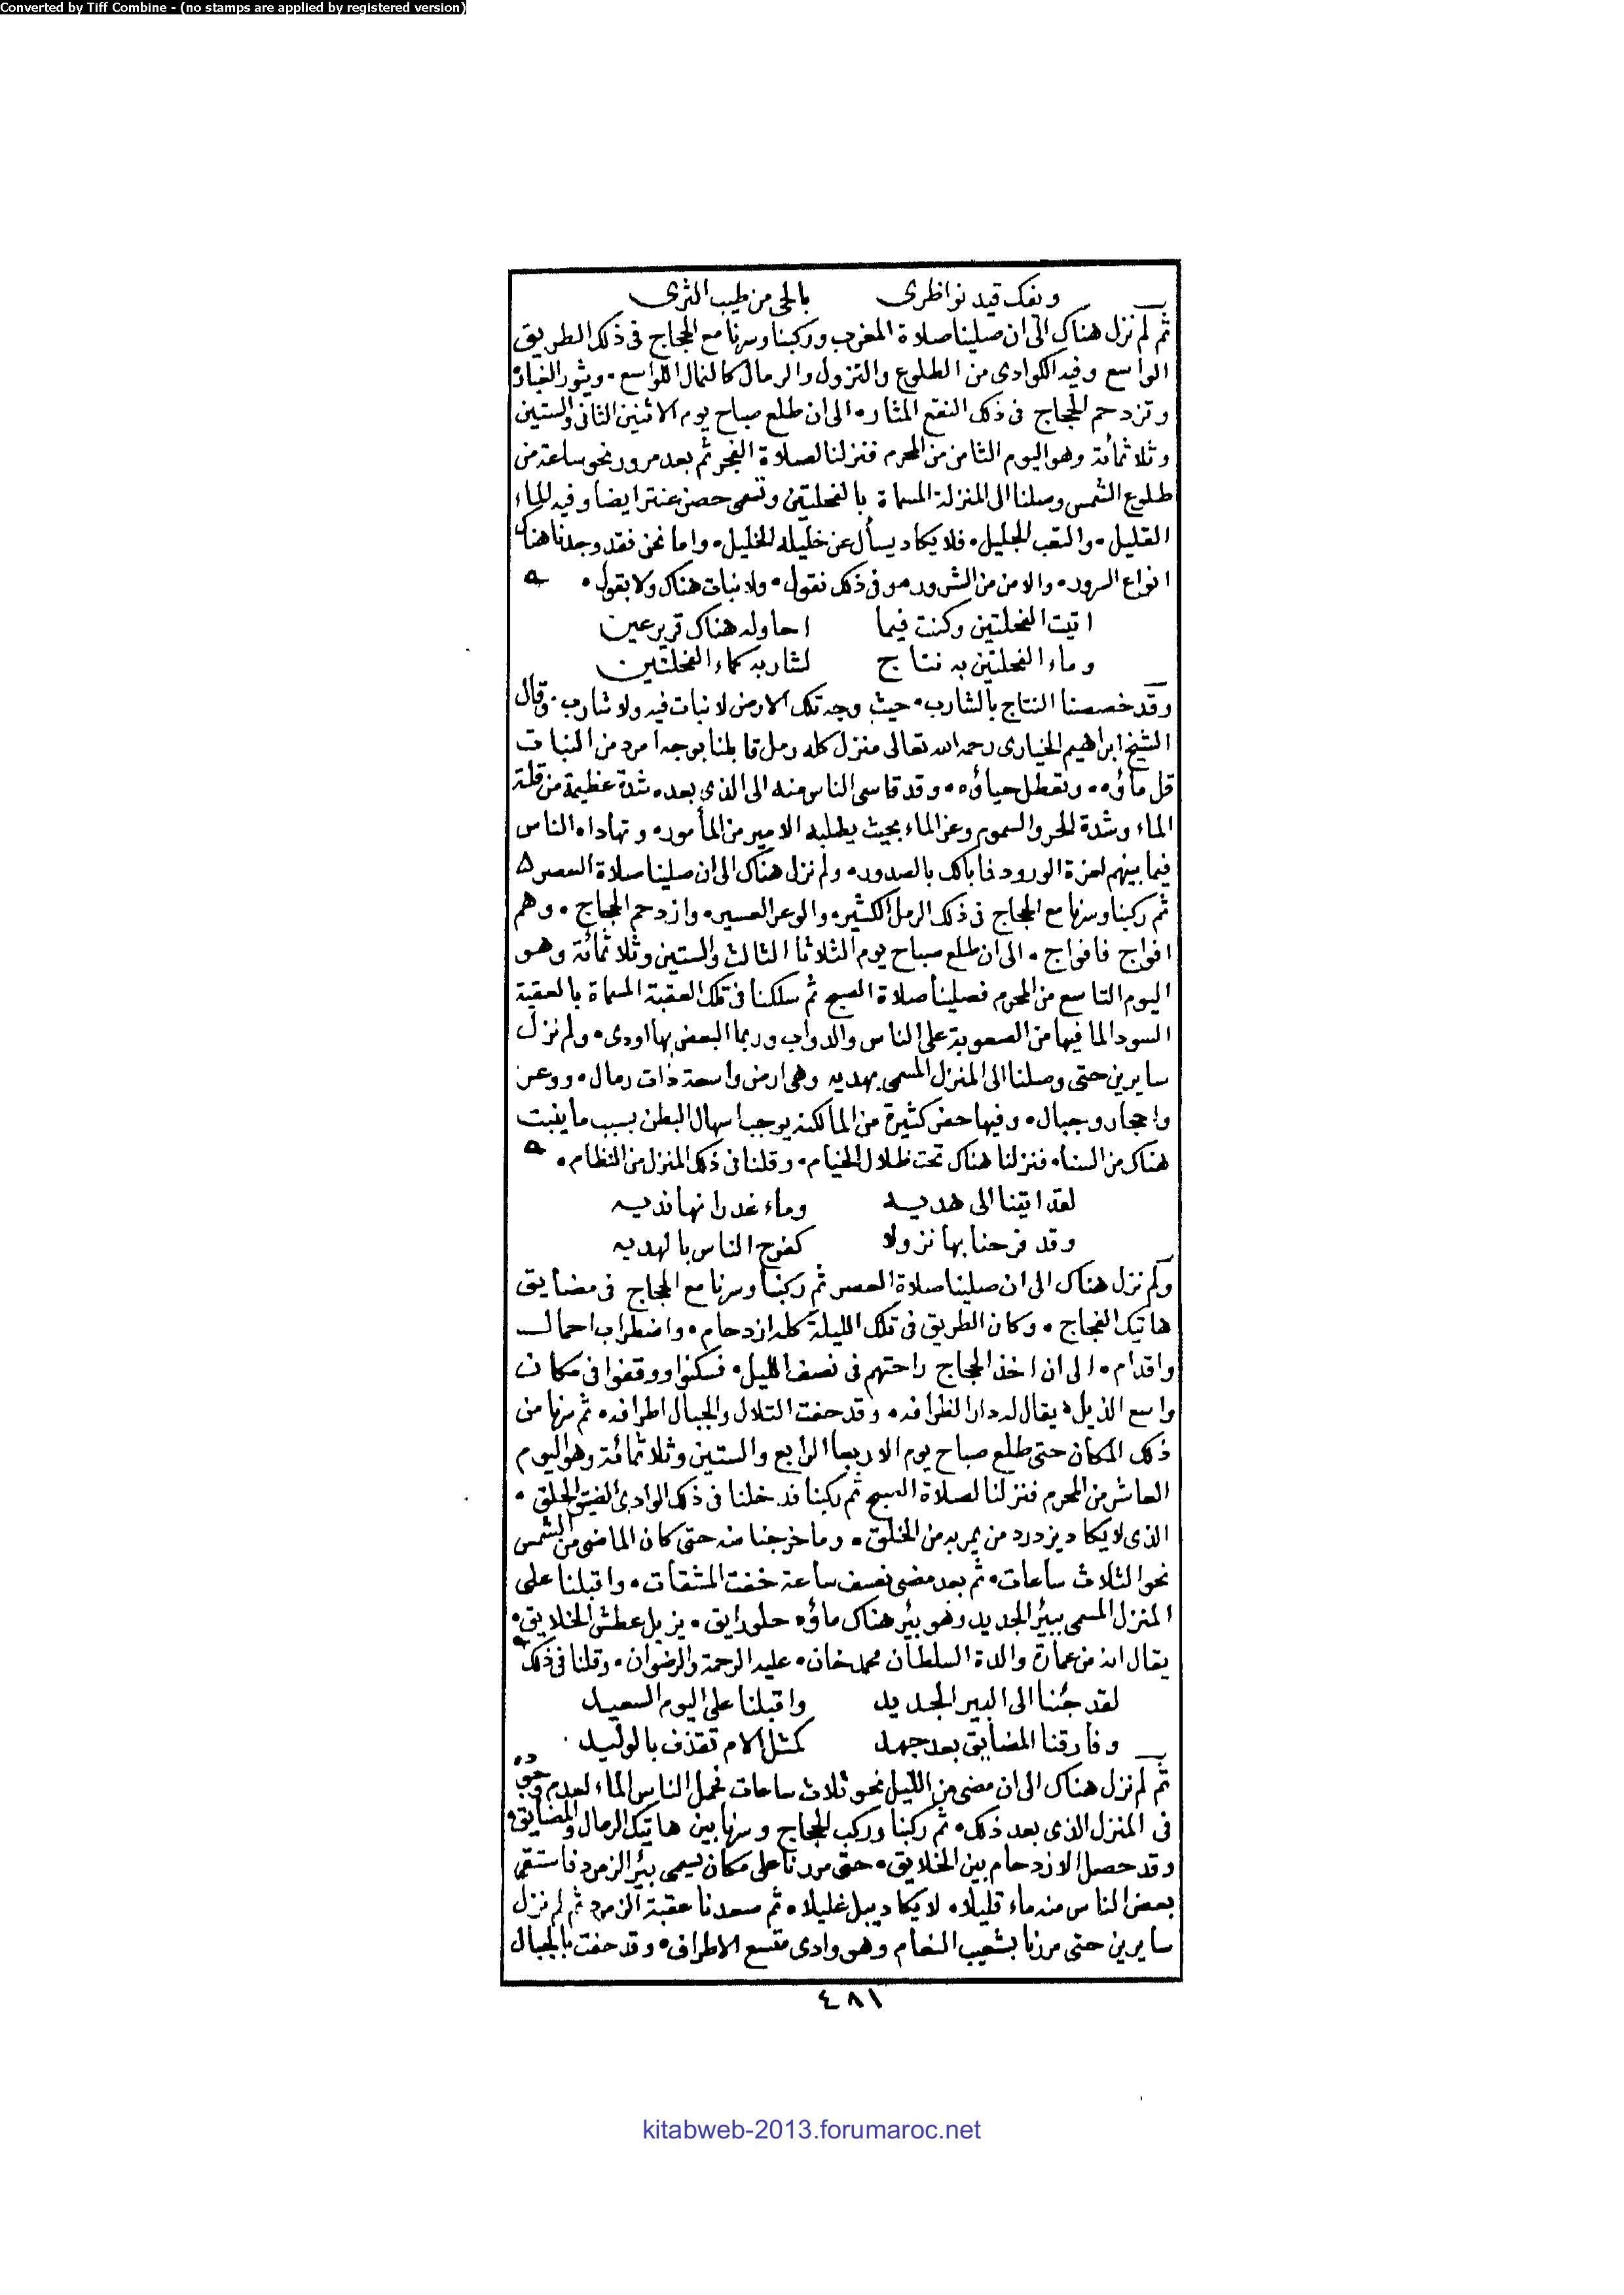 Converted by Tiff Combine - (no stamps are applied by registered version)
ونفك قيد نواظرى بالحى من طيب الثرى
ثم لم نزل هناك الى ان صلينا صلاة المغرب وركبنا وسرنا مع الحجاج فى ذلك الطريق
الواسع وفيه الكوادى من الطلوع والنزول والرمال كالنمال اللواسع • ويثور الغبار
وتزدحم الحجاج فى ذلك النقع المثار • الى ان طلع صباح يوم الاثنين الثانى والستين
وثلاثمائة وهو اليوم الثامن من المحرم فنزلنا لصلاة الفجر ثم بعد مرور نحو ساعة من
طلوع الشمس وصلنا الى المنزلة المسماة بالفحلتين وتسمى حصن عنتر ايضا وفيه الماء
القليل • والتعب الجليل • فلا يكاد يسأل عن خليله الخليل • واما نحن فقد وجدنا هناك
انواع السرور • والامن من الشرور • وفى ذلك نقول • ولا نبات هناك ولا بقول •
اتيت الفحلتين وكنت فيما احاوله هناك قرير عين
وماء الفحلتين به نتاج لشاربه كماء الفحلتين
وقد خصصنا النتاج بالشارب • حيث وجه تلك الارض لا نبات فيه ولا شارب • وقال
الشيخ ابراهيم الخيارى رحمه الله تعالى منزل كله رمل قابلنا بوجه امرد من النبات
قل ماؤه • وتعطل حياؤه • وقد قاسى الناس منه الى الذى بعده شدة عظيمة من قلة
الماء وشدة الحر والسموم وعز الماء بحيث يطلبه الامير من المأمور • وتهاداه الناس
فيما بينهم لعزة الورود فابالك بالصدور • ولم نزل هناك الى ان صلينا صلاة العصر
ثم ركبنا وسرنا مع الحجاج فى ذلك الرمل الكثير • والوعر العسير • وازدحم الحجاج • وهم
افواج فافواج • الى ان طلع صباح يوم الثلاثا الثالث والستين وثلاثمائة وهو
اليوم التاسع من المحرم فصلينا صلاة الصبح ثم سلكنا فى تلك العقبة المسماة بالعقبة
السودا لما فيها من الصعوبة على الناس والدواب وربما البعض بها اودى • ولم نزل
سايرين حتى وصلنا الى المنزل المسمى بهديه وهى ارض واسعة ذات رمال • ووعر
واحجار وجبال • وفيها حفر كثيرة من الماء لكنه يوجب اسهال البطن بسبب ما ينبت
هناك من السنا • فنزلنا هناك تحت ظلال الخيام • وقلنا فى ذلك المنزل من النظام •
لقد اتينا الى هديه وماء غدرانها نديه
وقد فرحنا بها نزولا كفرح الناس بالهديه
ولم نزل هناك الى ان صلينا صلاة العصر ثم ركبنا وسرنا مع الحجاج فى مضايق
هاتيك الفجاج • وكان الطريق فى تلك الليلة كله ازدحام • واضطراب احمال
واقدام • الى ان اخذ الحجاج راحتهم فى نصف الليل • فسكنوا ووقفوا فى مكان
واسع الذيل • يقال له دار الظرافه • وقد حفت التلال والجبال اطرافه • ثم سرنا من
ذلك المكان حتى طلع صباح يوم الاربعا الرابع والستين وثلاثمائة وهو اليوم
العاشر من المحرم فنزلنا لصلاة الصبح ثم ركبنا فدخلنا فى ذلك الوادى الضيق الحلق •
الذى لا يكاد يزدرد من يمر به من الخلق • وما خرجنا منه حتى كان الماضى من الشمس
نحو الثلاث ساعات • ثم بعد مضى نصف ساعة خفت المشقات • واقبلنا على
المنزل المسمى ببئر الجديد وهو بئر هناك ماؤه حلو رايق • يزيل عطش الخلايق •
يقال انه من عمارة والدة السلطان محمد خان • عليه الرحمة والرضوان • وقلنا فى ذلك
لقد جئنا الى البير الجديد واقبلنا على اليوم السعيد
وفارقنا المضايق بعد جهد كمثل الام تقذف بالوليد
ثم لم نزل هناك الى ان مضى من الليل نحو ثلاث ساعات فحمل الناس الماء لعدم وجوده
فى المنزل الذى بعد ذلك • ثم ركبنا وركب الحجاج وسرنا بين هاتيك الرمال والمضايق •
وقد حصل الازدحام بين الخلايق • حتى مررنا على مكان يسمى بئر الزمرد فاستقى
بعض الناس منه ماء قليلا • لا يكاد يبل غليلا • ثم صعدنا عقبة الزمرد ثم لم نزل
سايرين حتى مررنا بشعيب النعام وهو وادى متسع الاطراف • وقد حفت بالجبال
٤٨١
kitabweb-2013.forumaroc.net